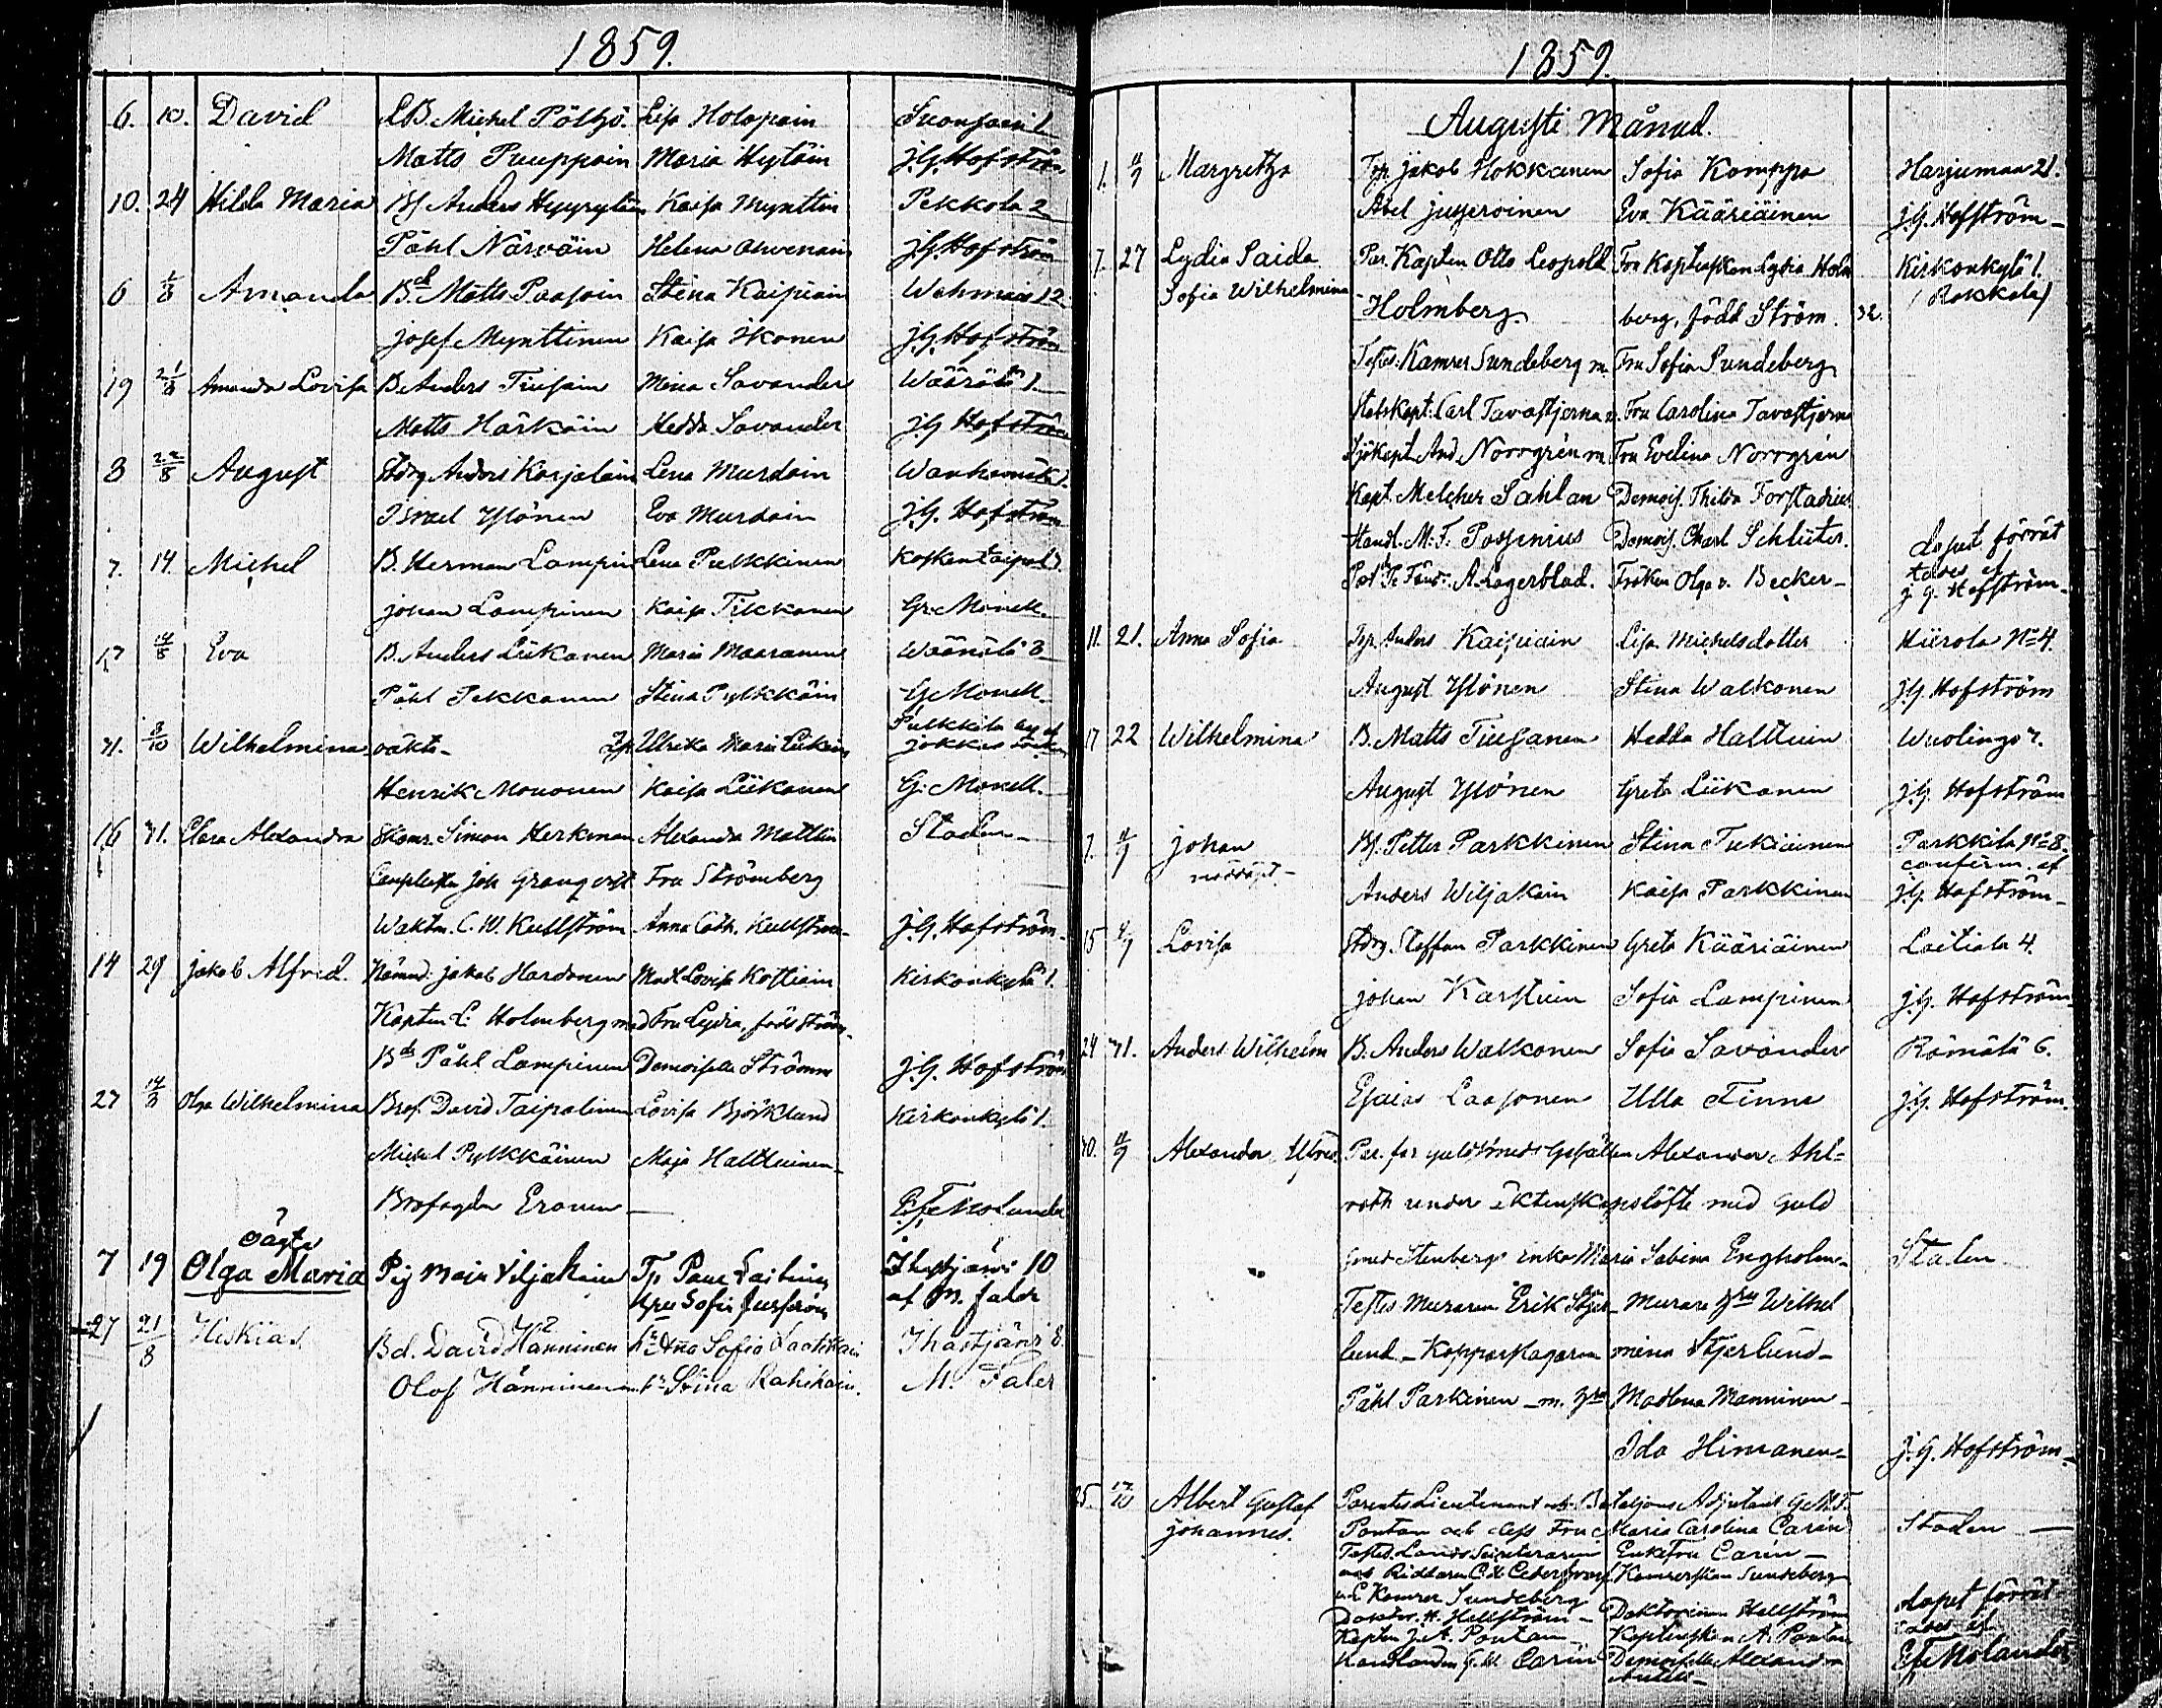 1859.
6. 10. David LB. Michel Pöllijö. Lisa Holopain Suonsaari 1
Matts Puuppoin Maria Hytöin J.G. Hofström
10. 24 Hilda Maria Bf Anders Kaisa Mynttin Pekkola 2
Påhl Närväin Helena Ahvenain J.G. Hofström
6 1/8 Amanda Bd. Matts Paasoin Stina Kaipiain 12
Josef Mynttinen Kaisa Ikonen J.G. Hofström
19 21/8 Amanda Lovisa B. Anders Tiusain Mina Savander Wäärälä 1.
Matts Härkäin Hedda Savander J.G. Hofström
3 22/8 August Anders Karjalain Lena Murdoin
Israel Ylönen Eva Murdoin J.G. Hofström
7. 14. Michel B. Herman Lampin Lena Pulkkinen Koskentaipal 3.
Johan Lampinen Kaisa Tikkanen G. Monell.
17 14/8 Eva B. Anders Liikanen Maria Maaranen Wäänälä 3
Påhl Pekkanen Stina Pylkkäin G. Monell.
31. 8/10 Wilhelmina oäkta Ip. Ulrika Maria Liikain Pulkkila
Henrik Mononen Kaisa Liikanen G. Monell.
16 31. Clara Alexandra Simon Herkman Alexandra Mattlin Staden
Joh Granqvist Fru Strömberg
Waktm. C. W. Kullström Anna Cath. Kullström J.G. Hofström.
14 29 Jakob Alfred. Nämnd. Jakob Hardonen Mad Lovisa Kottiain Kirkonkylä 1.
Kapten L. Holmberg med Fru Lydia, född Ström.
Bd Påhl Lampinen Demoiselle Strömm J.G. Hofström
27 14/8 Olga Wilhelmina Brof. David Taipalinen Lovisa Björklund Kirkonkylä 1.
Michel Pylkkäinen Maja Halttuinen
Brofogden Eronen E. F. Molander
oägta
7 19 Olga Maria Pig Maja Viljakain Tp Paul Laitin Ihastjärvi 10
Hu Sofia af M. Faler
27 21/8 Hiskias. Bd. David Hänninen h. Ana Sofia Laatikain Ihastjärvi 8.
Olof Hänninen m. h. Stina Rahikain. M. Faler
1859.
Augusti Månad.
1. 11/9 Margretha Tp. Jakob Hokkanen Sofia Komppa Harjumaa 21.
Abel Juseroinen Eva Kääriäinen J.G. Hofström
7. 27 Lydia Saida Par. Kapten Otto Leopold Fru Kaptenskan Lydia Holm Kirkonkylä 1.
Sofia Wilhelmina Holmberg. berg, född Ström. 32. (Rokkala)
Testes. Kamrer Sundeberg m. Fru Sofia Sundeberg
Stabskapt. Carl Tavastjerna m. Fru Carolina Tavastjerna
Sjökapt. And. Norrgrén m. Fru Evelina Norrgrén
Kapt. Melcher Sahlan Demois. Thilda Forstadius
Handl. M. F. Possenius Demois. Charl Schlüter. Dopet förrät
A. Lagerblad. Fröken Olga v. Becker tades af
J. G. Hofström
11. 21. Anna Sofia Tp. Anders Kaipiain Lisa Michelsdotter Hiirola No 4.
August Ylönen Stina Walkonen J.G. Hofström
17 22 Wilhelmina B. Matts Tiusanen Hedda Halttuin Wuolingo 7.
August Ylönen Greta Liikanen J.G. Hofström
7. 11/9 Johan Bf. Petter Parkkinen Stina Tukiainen Parkkila No 8.
nöddöpt confirm. af
Anders Wiljakain Kaisa Parkkinen J.G. Hofström
15 4/9 Lovisa Staffan Parkkinen Greta Kääriäinen Laitiala 4.
Johan Karstuin Sofia Lampinen J.G. Hofström
24 31. Anders Wilhelm B. Anders Walkonen Sofia Savander Rämälä 6.
Esaias Laasonen Ulla Finna J.G. Hofström.
30. 11/9 Alexander Par. for guldsmeds Gesällen Alexander Ahl=
roth under äktenskapslöfte med Guld
smed Stenbergs enka Maria Sabina Engholm Staden
Testes Muraren Erik Stjer- Murare Hru Wilhel
lund - Kopparslagaren mina Stjerlund
Påhl Parkinen - m. Hru Madlena Manninen
Ida Himanen J.G. Hofström
25. 17/10 Albert Gustaf Parentes Lieutenant och Bataljons Adjutant G. M. F.
Johannes. Pontan och dess Fru Maria Carolina Carén Staden
Testes. Lands Sekreteraren Enkefru Carén
och Riddaren Kamrerskan Sundeberg
Kamrer Sundeberg Dopet förrät
Doktor. H. Hellström Doktorinnan Hellström tades af
Kapten J. A. Pontan Kaptenskan A. Pontan
Carén Demoiselle E. F. Molander